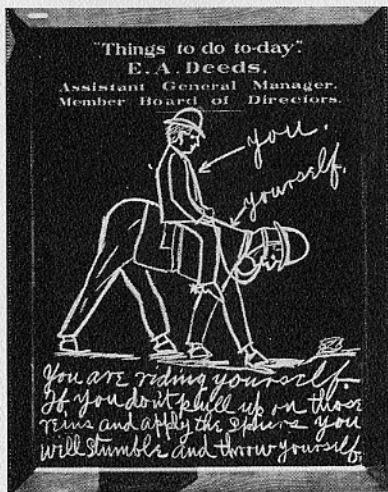 "Things to do to-day".
E. A. Deeds,
Assistant General Manager.
Member Board of Directors.
you.
yourself.
You are riding yourself.
If you don't pull up on those
reins and apply the spurs you
will stumble and throw yourself.